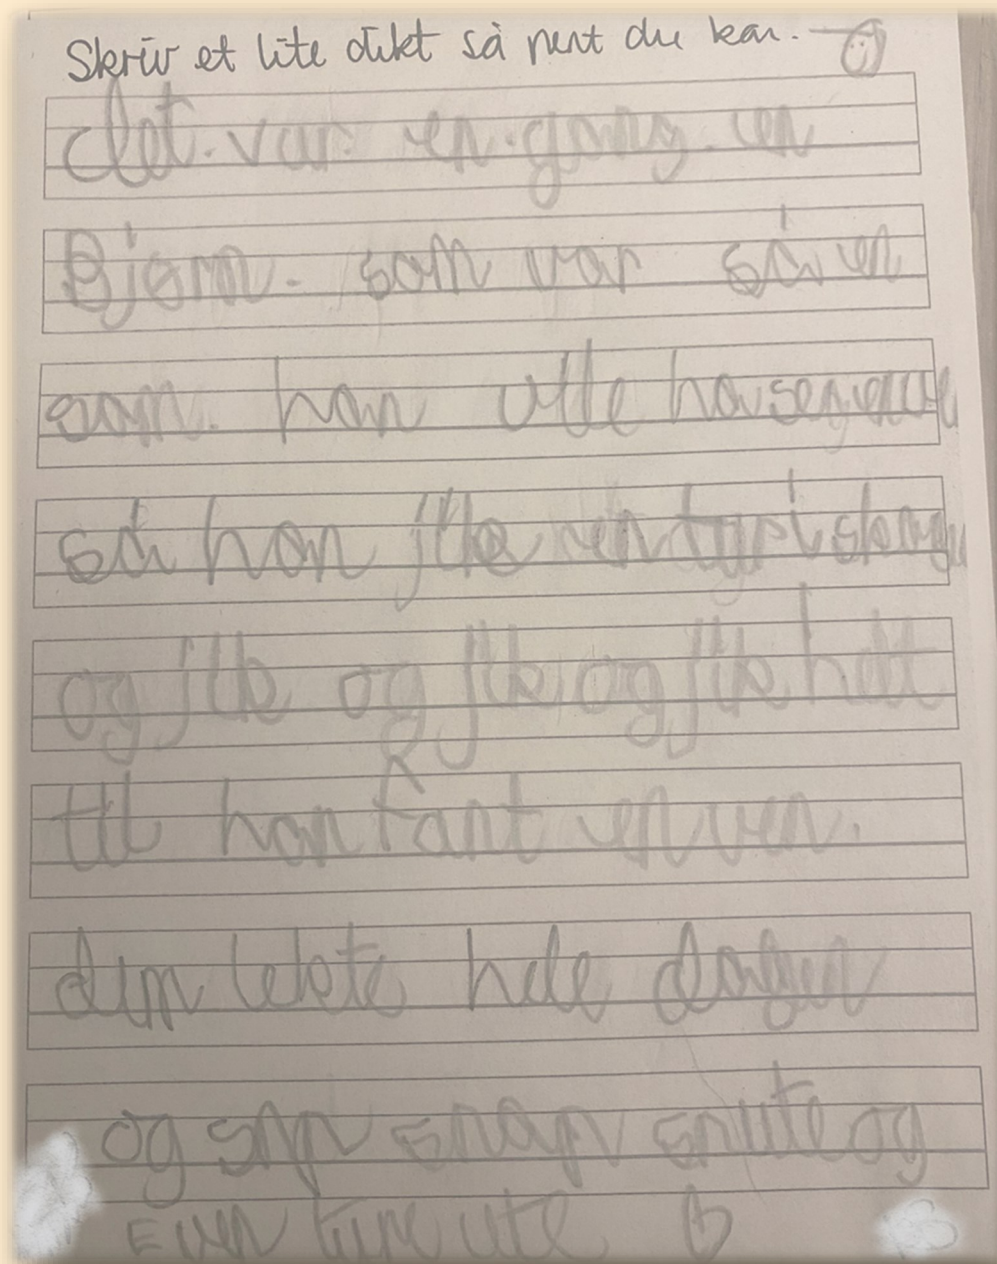 Skriv et lite dikt så pent du kan.
det. var. en. gang. en
Bjørn. som var så en
som. han ville ha
så han fikk en tur i skog
og fikk og fikk og fikk helt
til han fant en ven.
dem lekte hele dagen
og snip snap snute og
ute